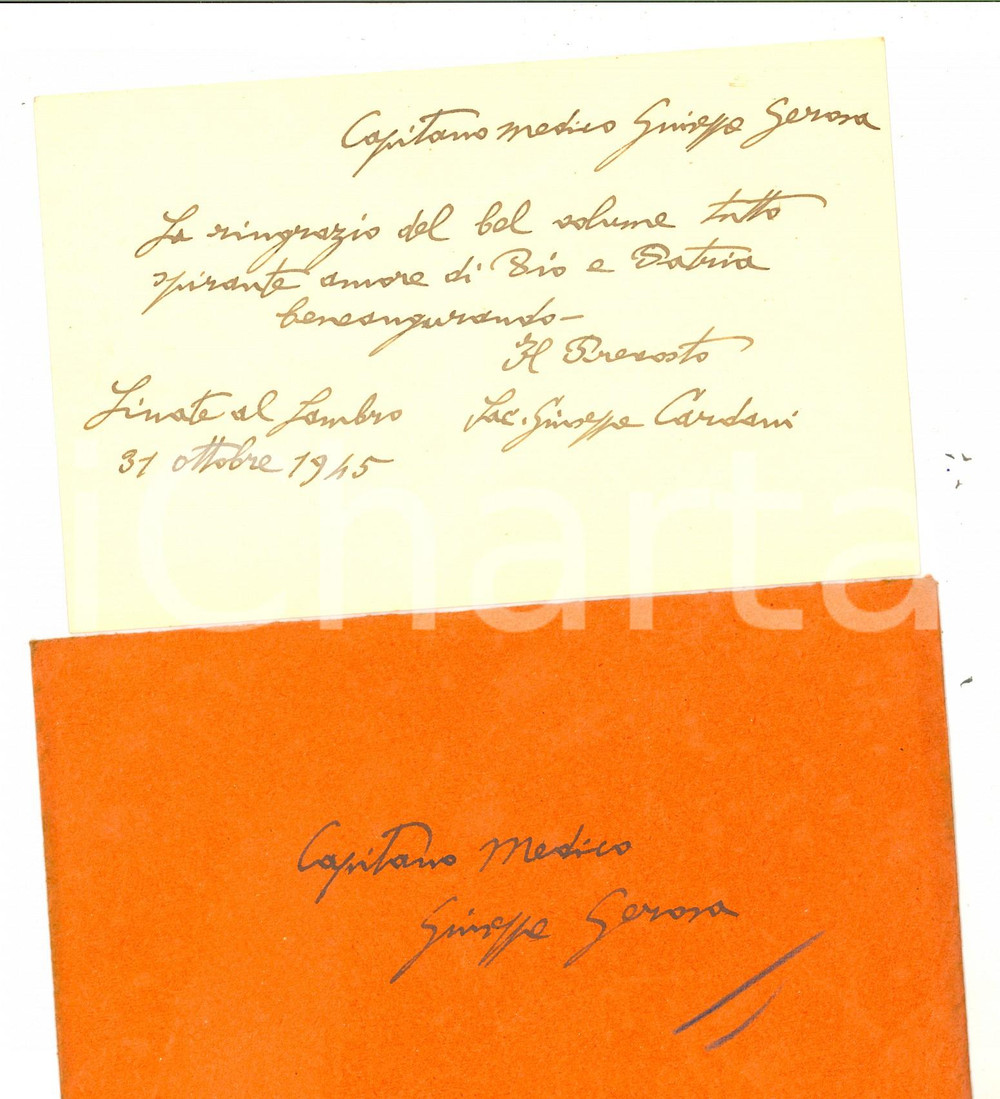 Capitano medico Giuseppe Gerosa
La ringrazio del bel volume tutto
spirante amore di Dio e Patria
beneaugurando—
Il Prevosto
Linate al Lambro Sac. Giuseppe Cardani
31 ottobre 1945
iCharta
Capitano Medico
Giuseppe Gerosa